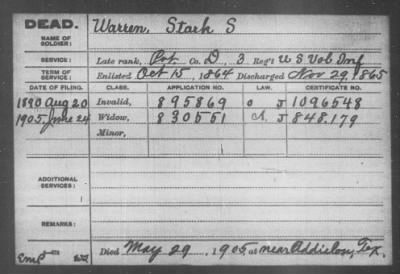 DEAD. Warren, Stark S
NAME OF SOLDIER:
SERVICE: Late rank, Pvt Co. D, 3 Reg't U S Vol Inf
TERM OF SERVICE: Enlisted Oct 15, 1864 Discharged Nov 29, 1865
DATE OF FILING. CLASS. APPLICATION NO. LAW. CERTIFICATE NO.
1890 Aug 20 Invalid, 895869 J 1096548
1905. June 24 Widow, 830551 J 848.179
Minor,
ADDITIONAL SERVICES:
REMARKS:
Died May 29, 1905 at near Addielou, Tex.